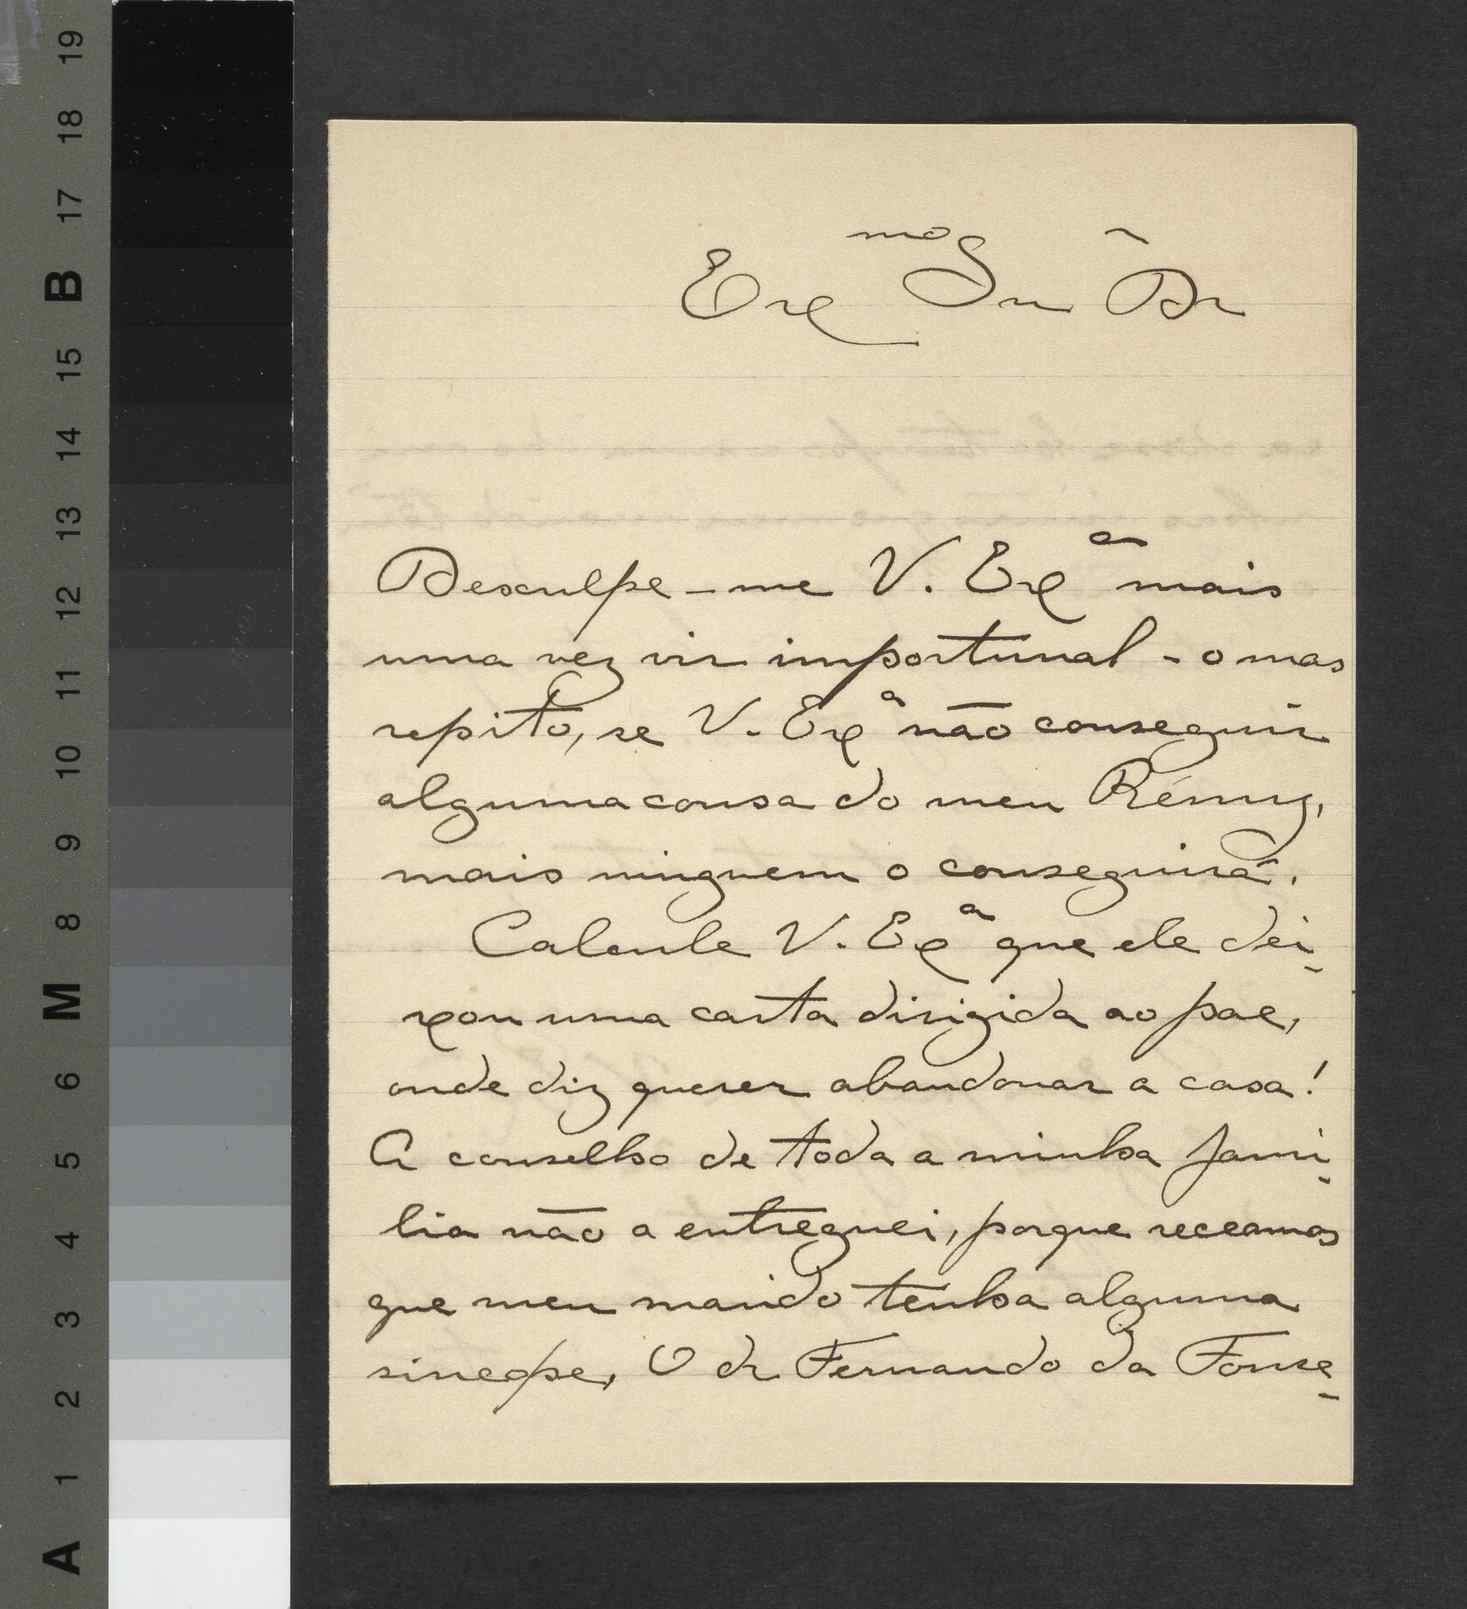 Exmo Snr Dr
Desculpe-me V. Exa mais
uma vez vir importunal-o mas
repito, se V. Exa não conseguir
alguma cousa do meu Rémy,
mais ninguem o conseguirá.
Calcule V. Exa que ele dei-
xou uma carta dirigida ao pae,
onde diz querer abandonar a casa!
A conselho de toda a minha fami-
lia não a entreguei, porque receamos
que meu marido tenha alguma
sincope. O dr Fernando da Fonse-
A 1 2 3 4 5 6 M 8 9 10 11 12 13 14 15 B 17 18 19